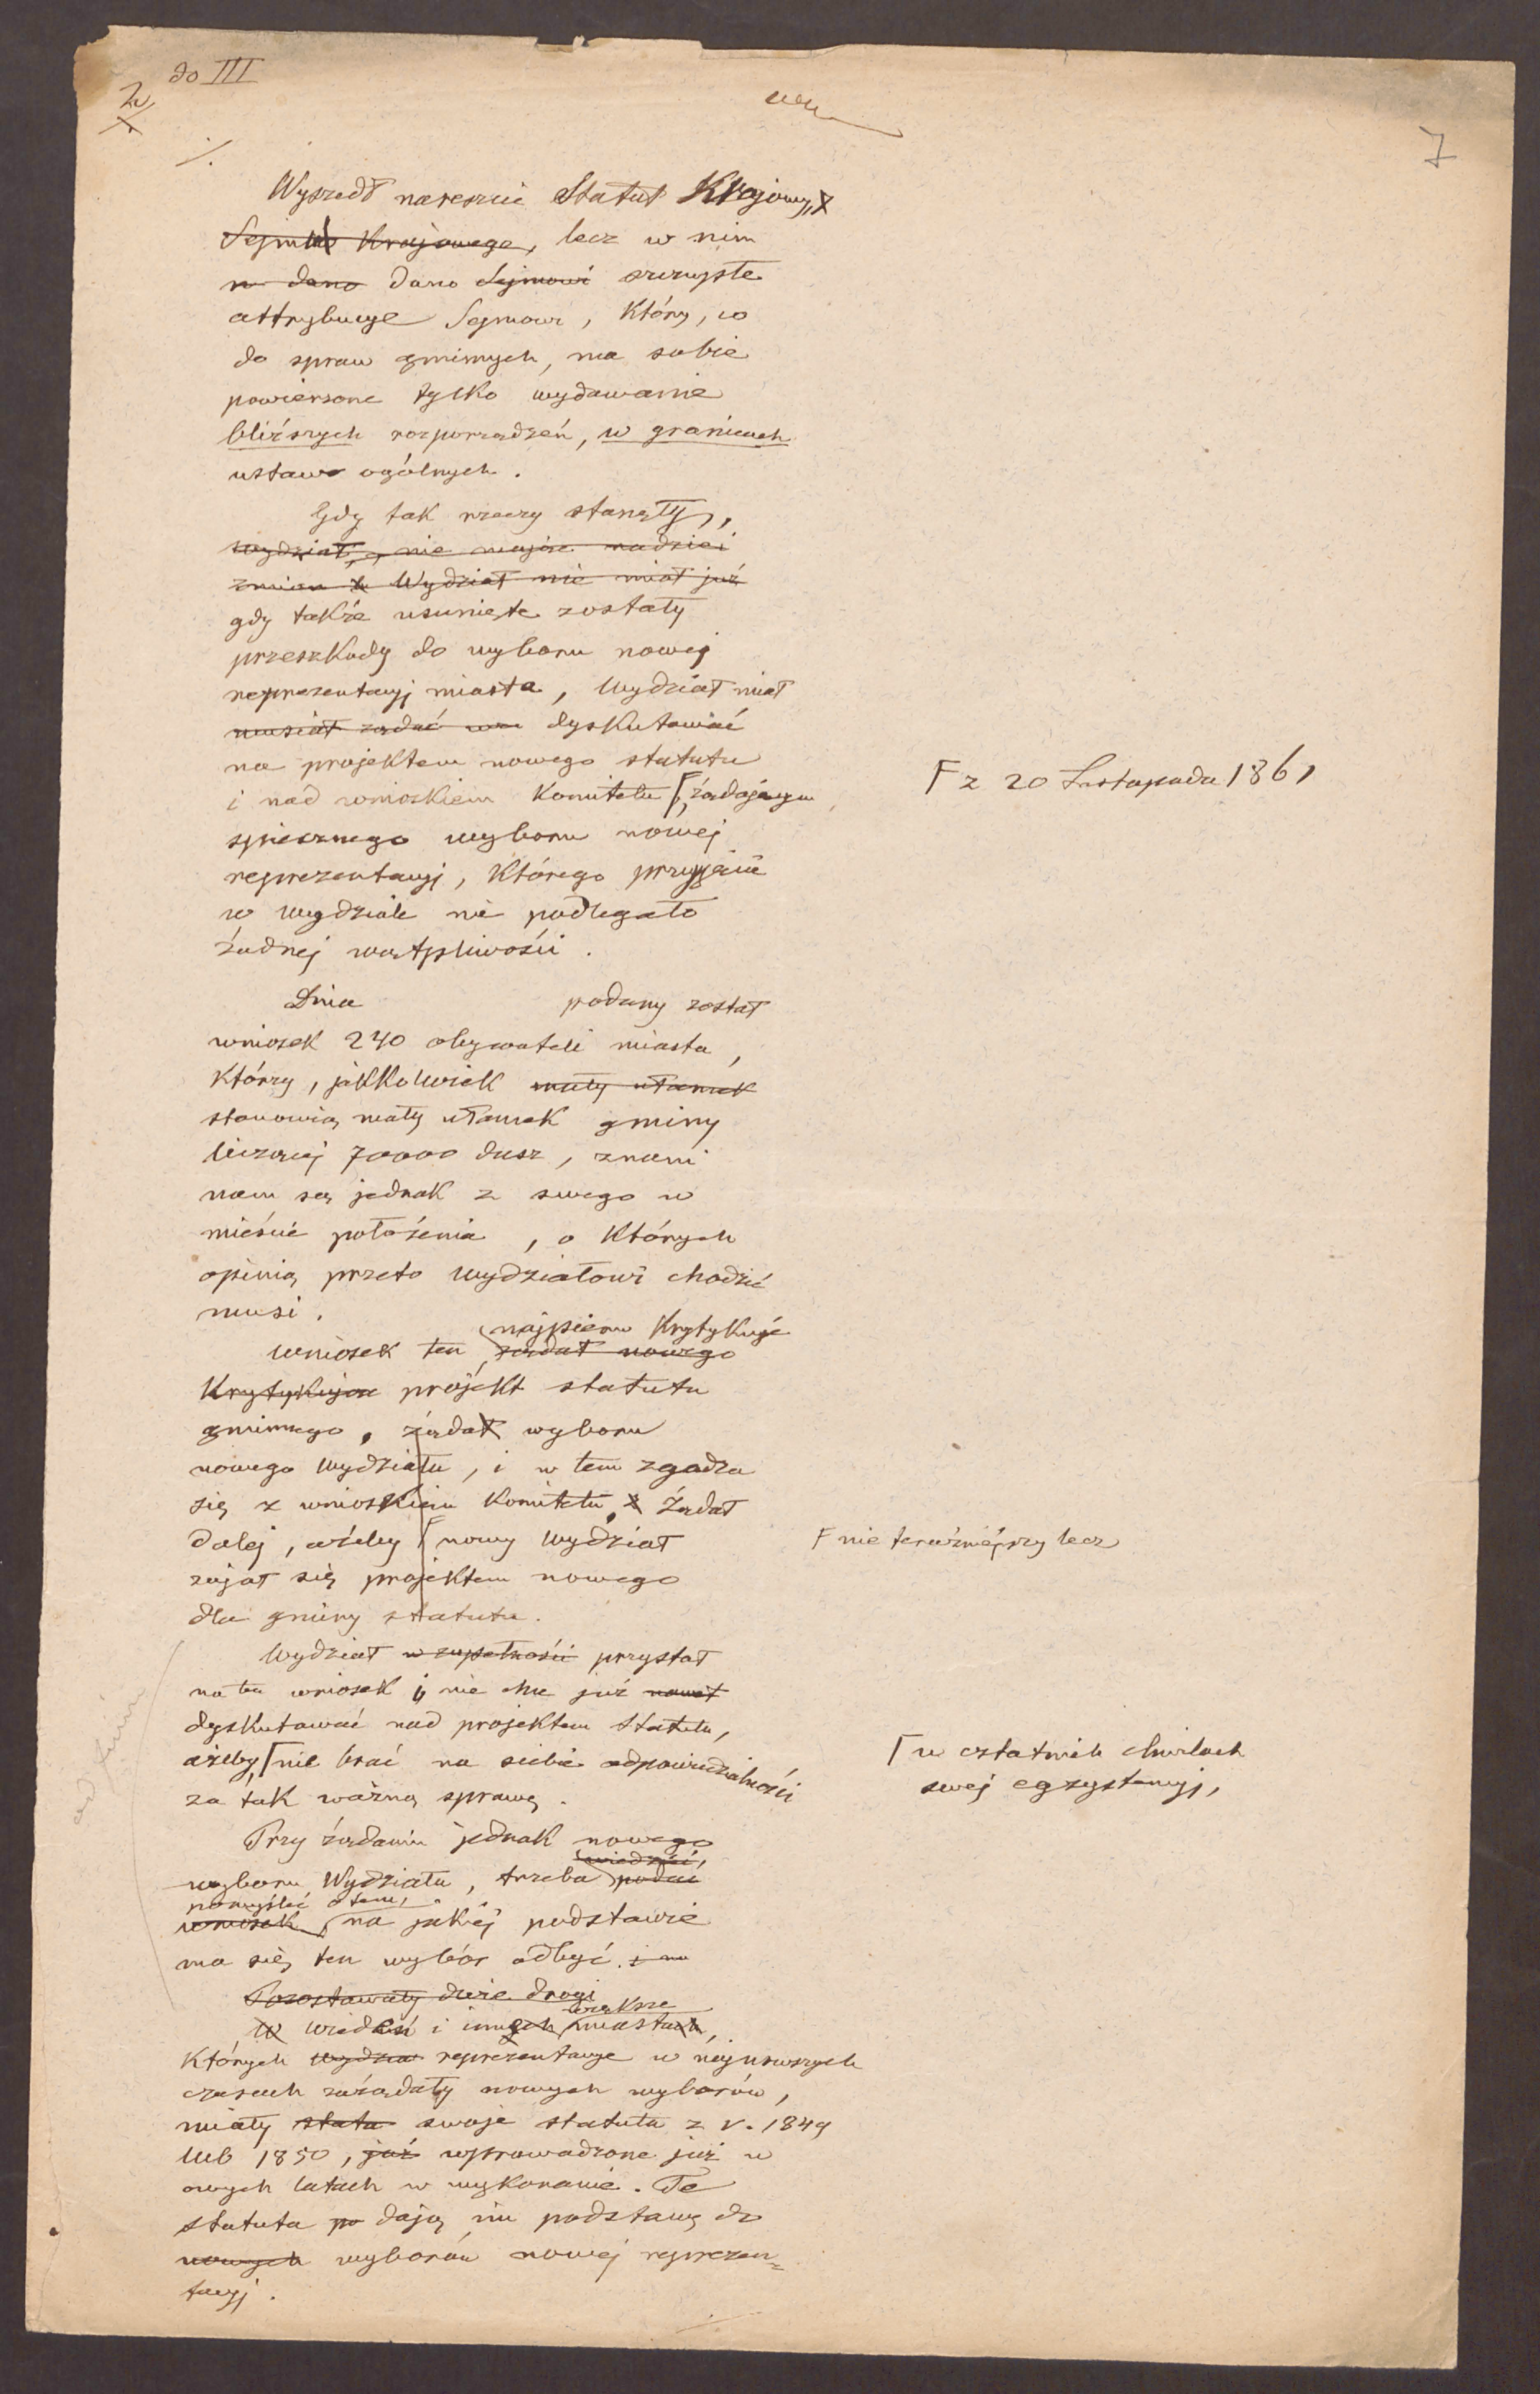 do III
7
Wyszedł nareszcie Statut Krajowy,
Sejmu Krajowego, lecz w nim
w dano dano Sejmowi szczupłe
attrybucye Sejmowi, który, co
do spraw gminnych, ma sobie
powierzone tylko wydawanie
bliższych rozporządzeń, w granicach
ustaw ogólnych.
Gdy tak rzeczy stanęły,
wydział, nie mając nadziei
zmian Wydział nie miał już
gdy także usunięte zostały
przeszkody do wyboru nowej
reprezentacyj miasta, Wydział miał
musiał żądać dyskutować
na projektem nowego statutu
i nad wnioskiem Komitetu, żądającym
Γ z 20 Listopada 1861
spiesznego wyboru nowej
reprezentacyj, którego przyjęcie
w wydziale nie podlegało
żadnej wątpliwości.
Dnia podany został
wniosek 240 obywateli miasta,
którzy, jakkolwiek mały ułamek
stanowią mały ułamek gminy
liczącej 70000 dusz, znani
nam są jednak z swego w
mieście położenia, o których
opinią przeto wydziałowi chodzić
musi.
najpierw krytykuje
Wniosek ten żądał nowego
Krytykując projekt statutu
gminnego, żądał wyboru
nowego wydziału, i w tem zgadza
się z wnioskiem Komitetu, żądał
dalej, ażeby Γ nowy wydział
Γ nie teraźniejszy lecz
zajął się projektem nowego
dla gminy statutu.
Wydział w zupełności przystał
na ten wniosek i nie chce już nawet
dyskutować nad projektem statutu,
ażeby, Γ nie brać na siebie odpowiedzialności
Γ w ostatnich chwilach
swej egzystencyj,
za tak ważną sprawę.
Przy żądaniu jednak nowego
wiedzieć,
wyboru Wydziału, trzeba podać
pomyśleć o tem,
wniosek, na jakiej podstawie
ma się ten wybór odbyć. i na
Pozostawały dwie drogi
większe
W Wiedeń i innych miastach,
których wydział reprezentacye w najnowszych
czasach zażądały nowych wyborów,
miały statu swoje statuta z r. 1849
lub 1850, już wprowadzone już w
owych latach w wykonanie. Te
statuta po dają im podstawę do
nowych wyborów nowej reprezen=
tacyj.